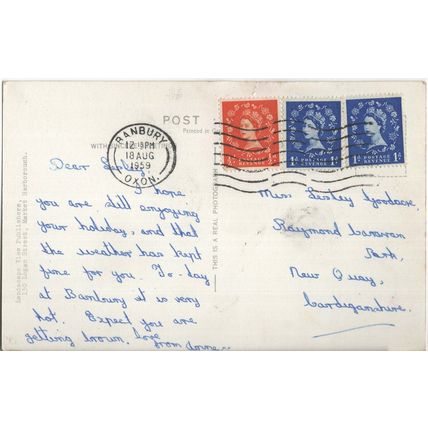 POST
Printed in
BANBURY
12 15PM
18 AUG
1959
OXON.
½D POSTAGE REVENUE ½D
1D POSTAGE REVENUE 1D
1D POSTAGE REVENUE 1D
Dear Lesley,
I hope
you are still enjoying
your holiday, and that
the weather has kept
fine for you. To-day
at Banbury it is very
hot. Expect you are
getting brown. love
from
Miss Lesley
Raymond Caravan
Park,
New Quay,
Cardiganshire.
THIS IS A REAL PHOTOGRAPH
Landscape View Publishers,
150 Logan Street, Market Harborough.